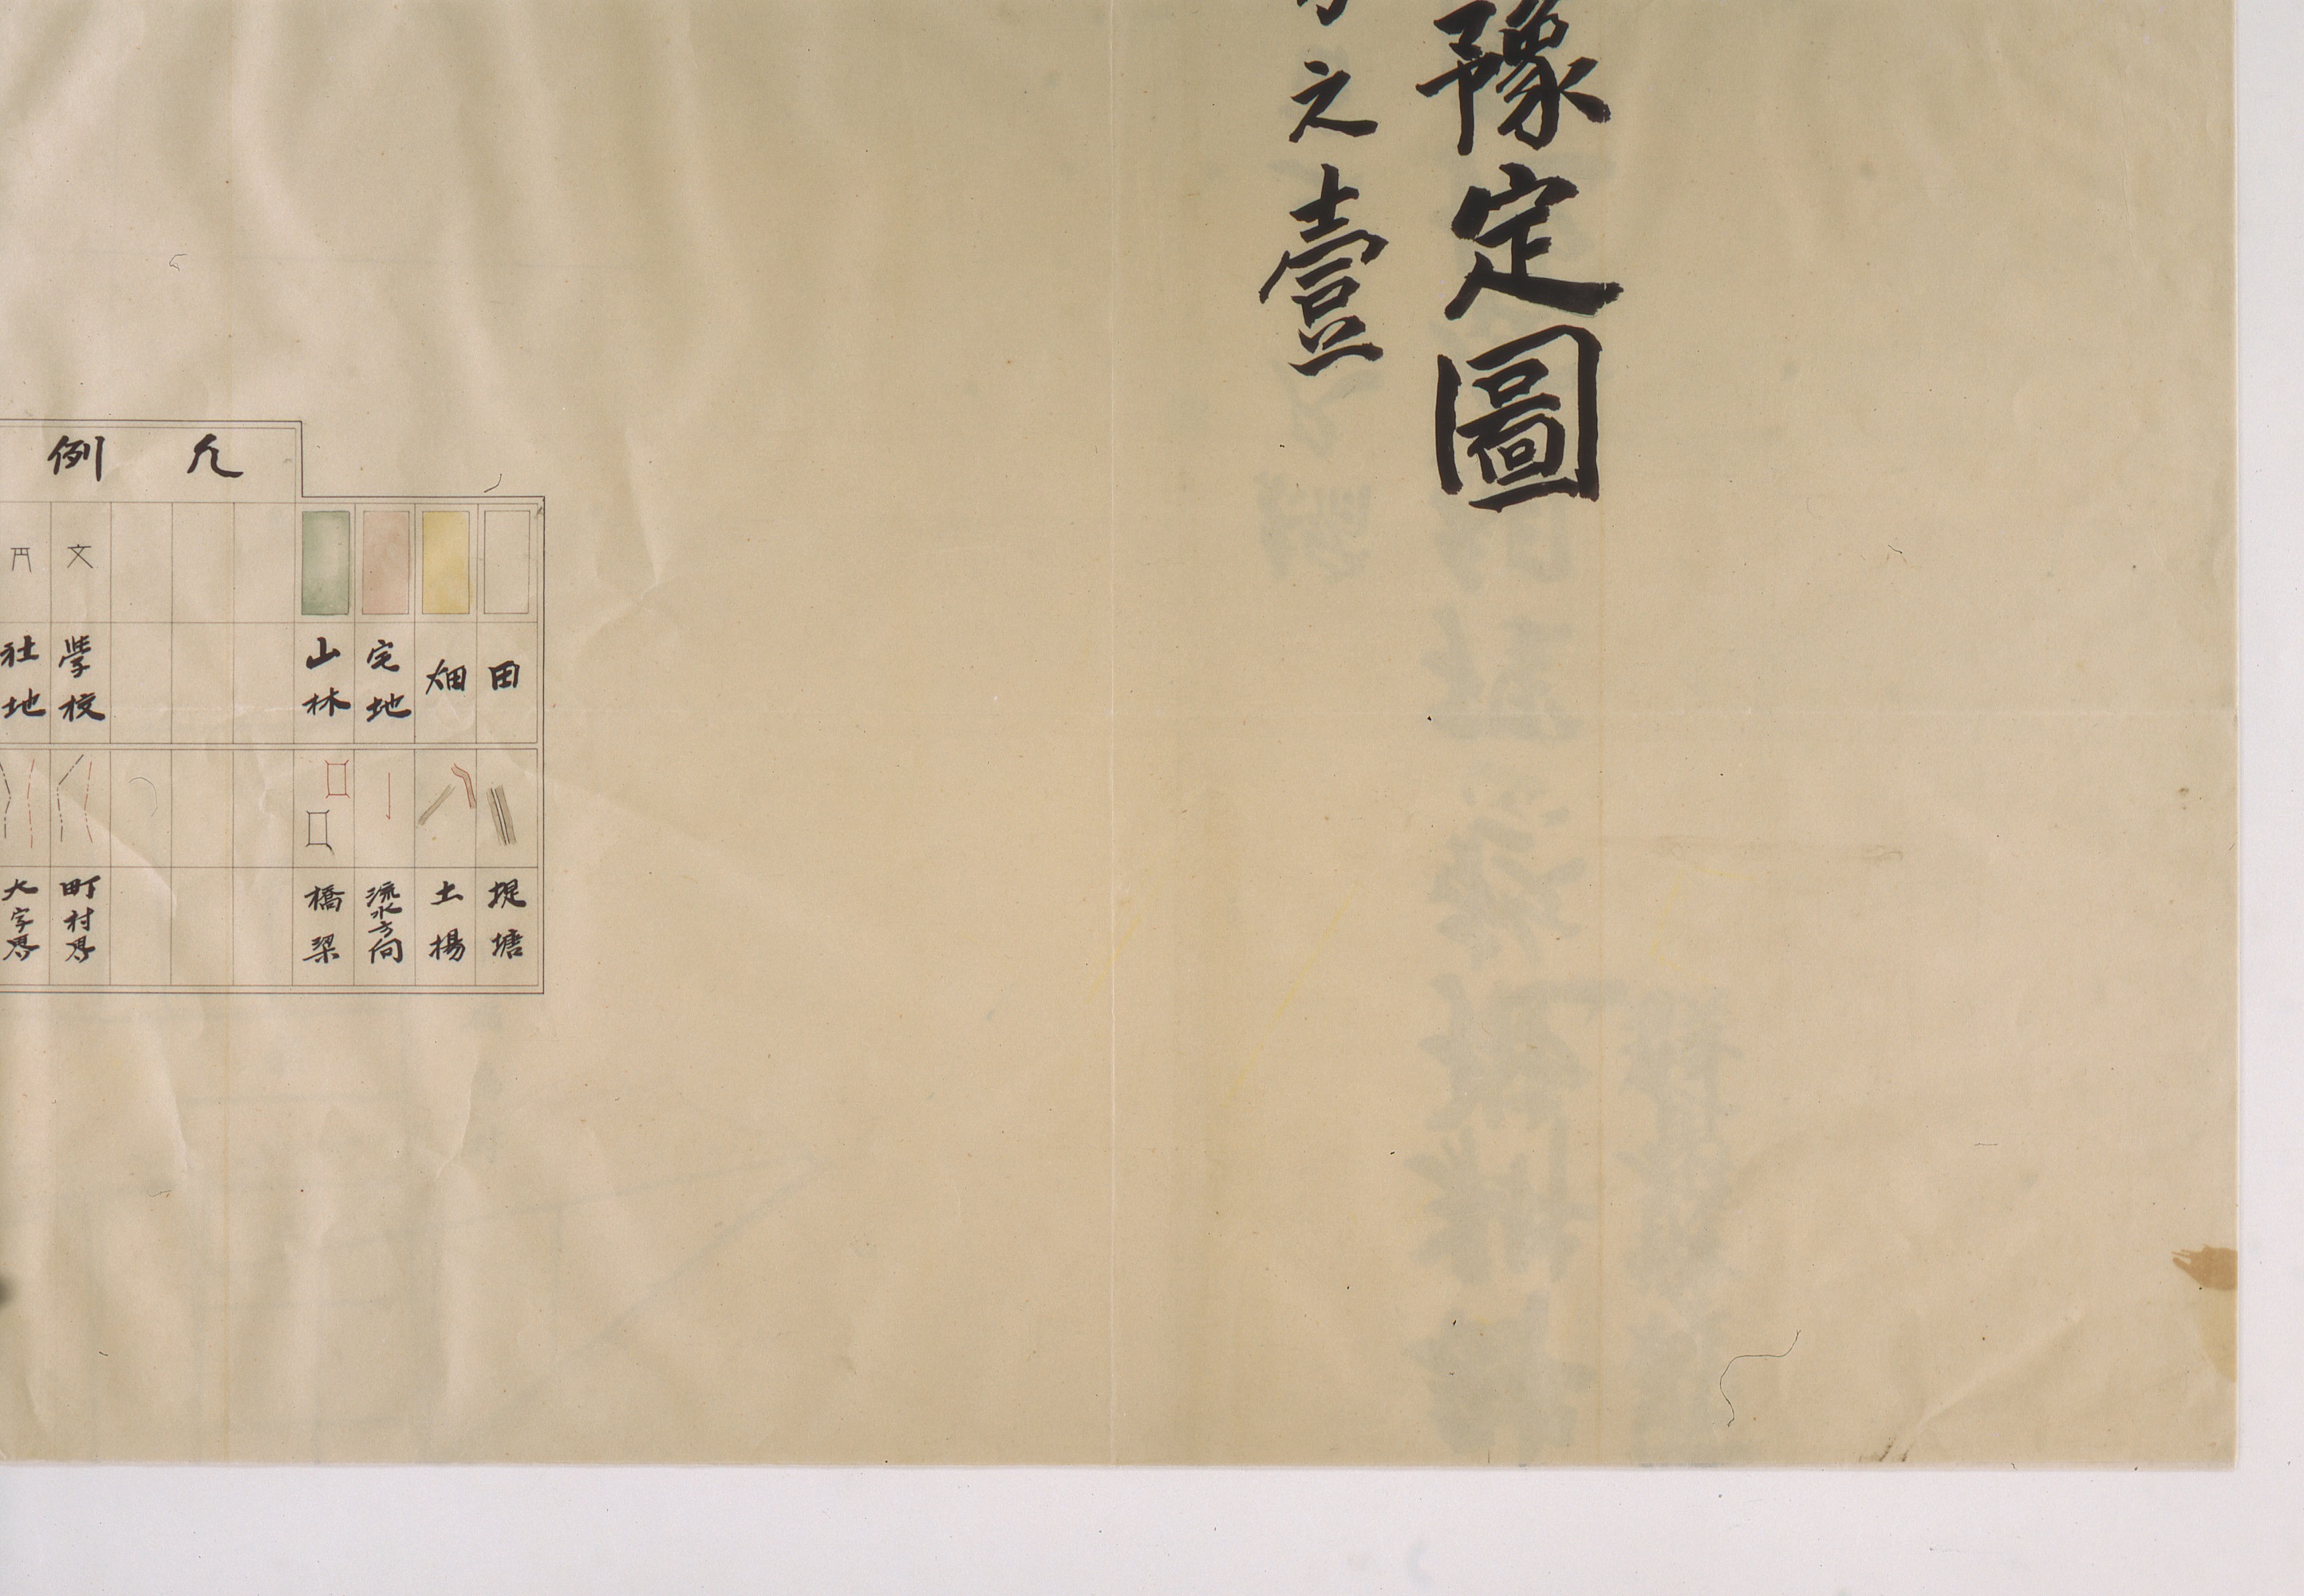 豫定圖
之壹
凡例
田
畑
宅地
山林
文
學校
社地
堤塘
土揚
流水方向
橋梁
町村界
大字界